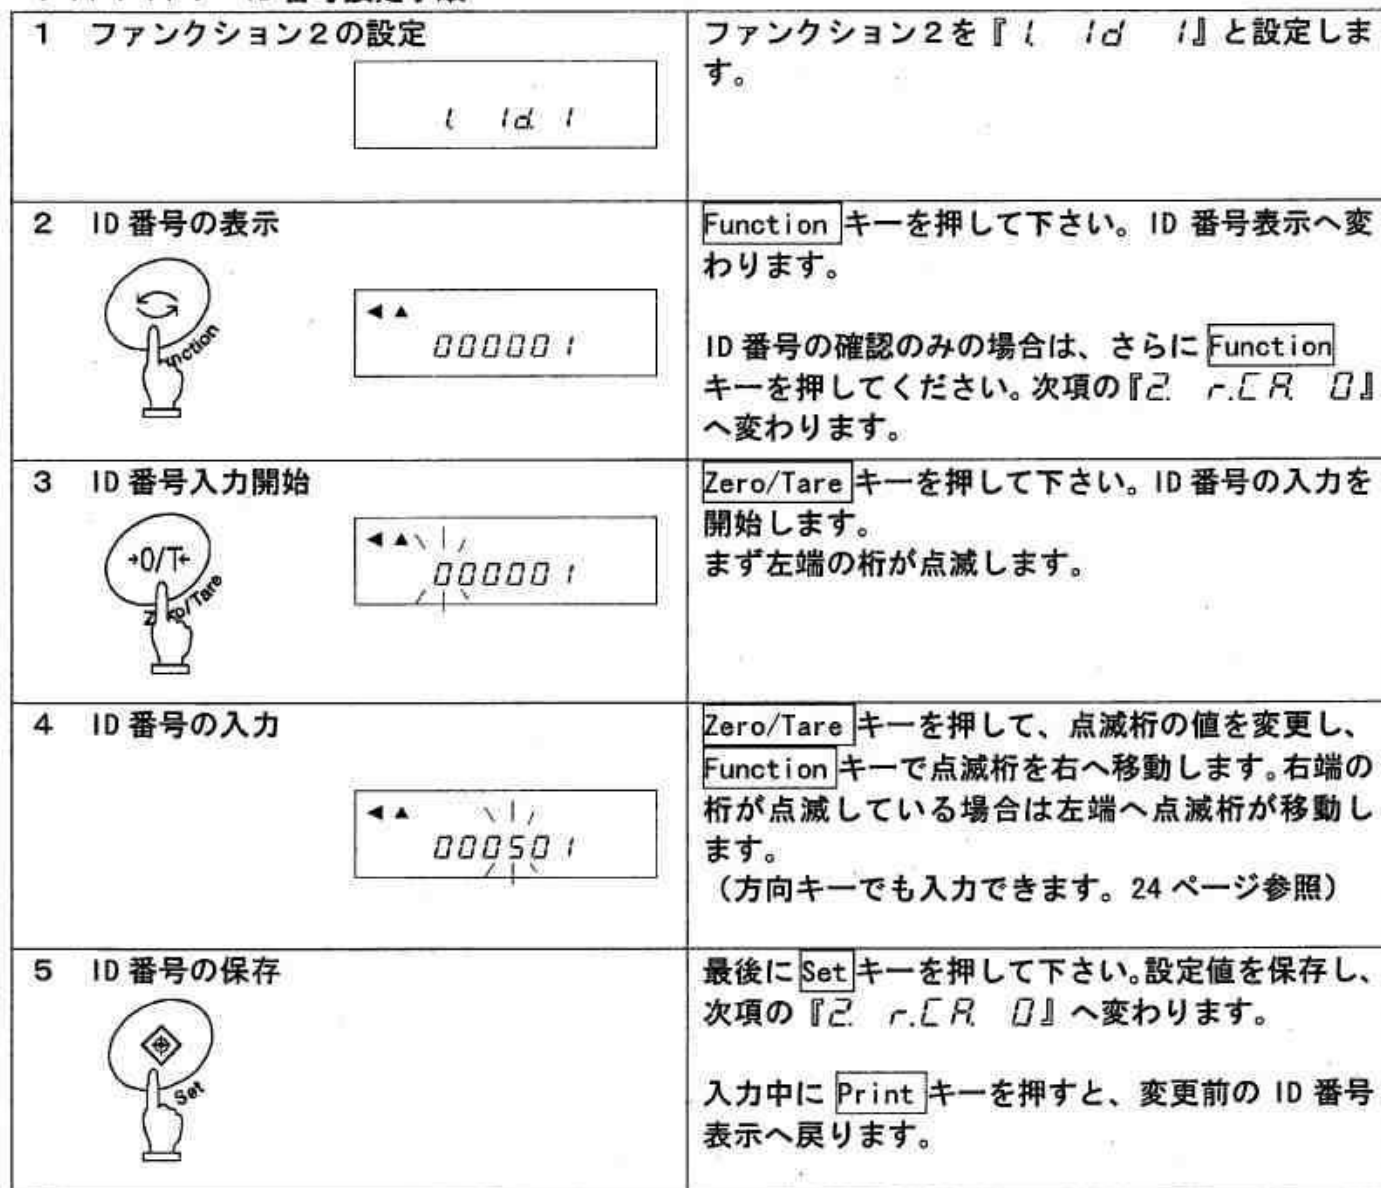 1 ファンクション2の設定
1. Id. 1
ファンクション2を『1. Id 1』と設定しま
す。
2 ID番号の表示
Function
◀▲
000001
Function キーを押して下さい。ID 番号表示へ変
わります。
ID 番号の確認のみの場合は、さらに Function
キーを押してください。次項の『2. r.CA. 0』
へ変わります。
3 ID番号入力開始
→0/T←
Zero/Tare
◀▲
000001
Zero/Tare キーを押して下さい。ID 番号の入力を
開始します。
まず左端の桁が点滅します。
4 ID番号の入力
◀▲
000501
Zero/Tare キーを押して、点滅桁の値を変更し、
Function キーで点滅桁を右へ移動します。右端の
桁が点滅している場合は左端へ点滅桁が移動し
ます。
(方向キーでも入力できます。24 ページ参照)
5 ID番号の保存
Set
最後に Set キーを押して下さい。設定値を保存し、
次項の『2. r.CA. 0』へ変わります。
入力中に Print キーを押すと、変更前の ID 番号
表示へ戻ります。